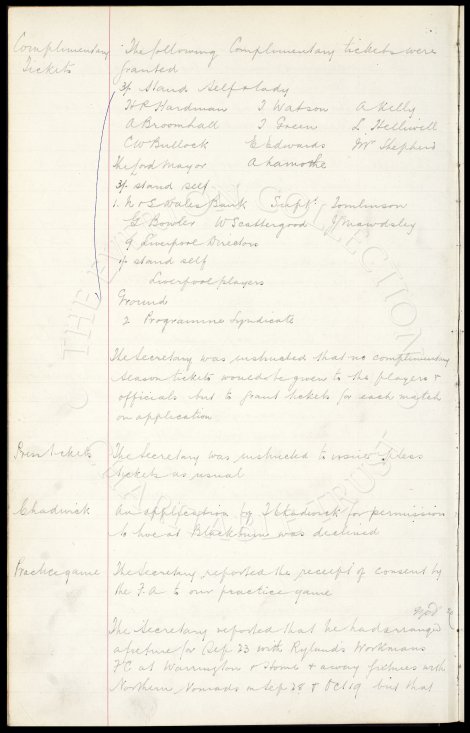 Complimentary The following Complimentary tickets were
Tickets granted
3/ Stand Self + lady
H R Hardman J Watson A Kelly
A Broomhall J Green L Helliwell
C W Bullock E Edwards W Shepherd
the Lord Mayor A Lamothe
3/ stand self
1. N + S Wales Bank Supt. Tomlinson
G Bowler W Scattergood Mawdsley
9 Liverpool Directors
stand self
Liverpool players
Ground
2 Programme Syndicate
The Secretary was instructed that no complimentary
season tickets would be given to the players +
officials but to grant tickets for each match
on application
Press tickets The Secretary was instructed to issue press
tickets as usual
Chadwick An application by Chadwick for permission
to live at Blackburn was declined
Practice game The Secretary reported the receipt of consent by
the F.A to our practice game
The Secretary reported that he had arranged
a fixture for Sep 23 with Rylands Workmans
FC at Warrington + home + away fixtures with
Northern Nomads on Sep 28 + Oct 19 but that
THE EVERTON COLLECTION
CHARITABLE TRUST